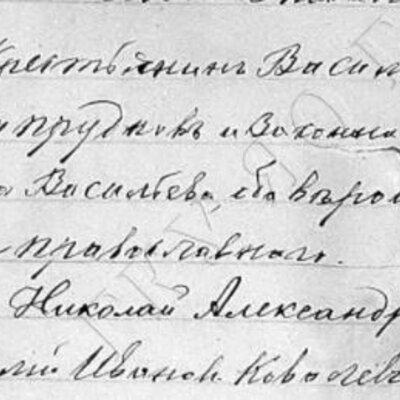 Крестьянинъ Васил
прудковъ и законна
Васильева, оба вѣро
православного.
Николай Александр
Иванов. Ковалев